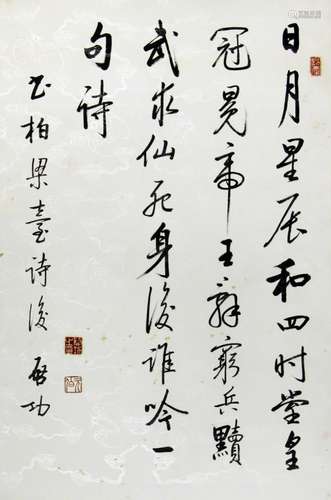 日月星辰和四时堂皇
冠冕帝王辞穷兵黩
武求仙死身後谁吟一
句诗
书柏梁臺诗後 启功